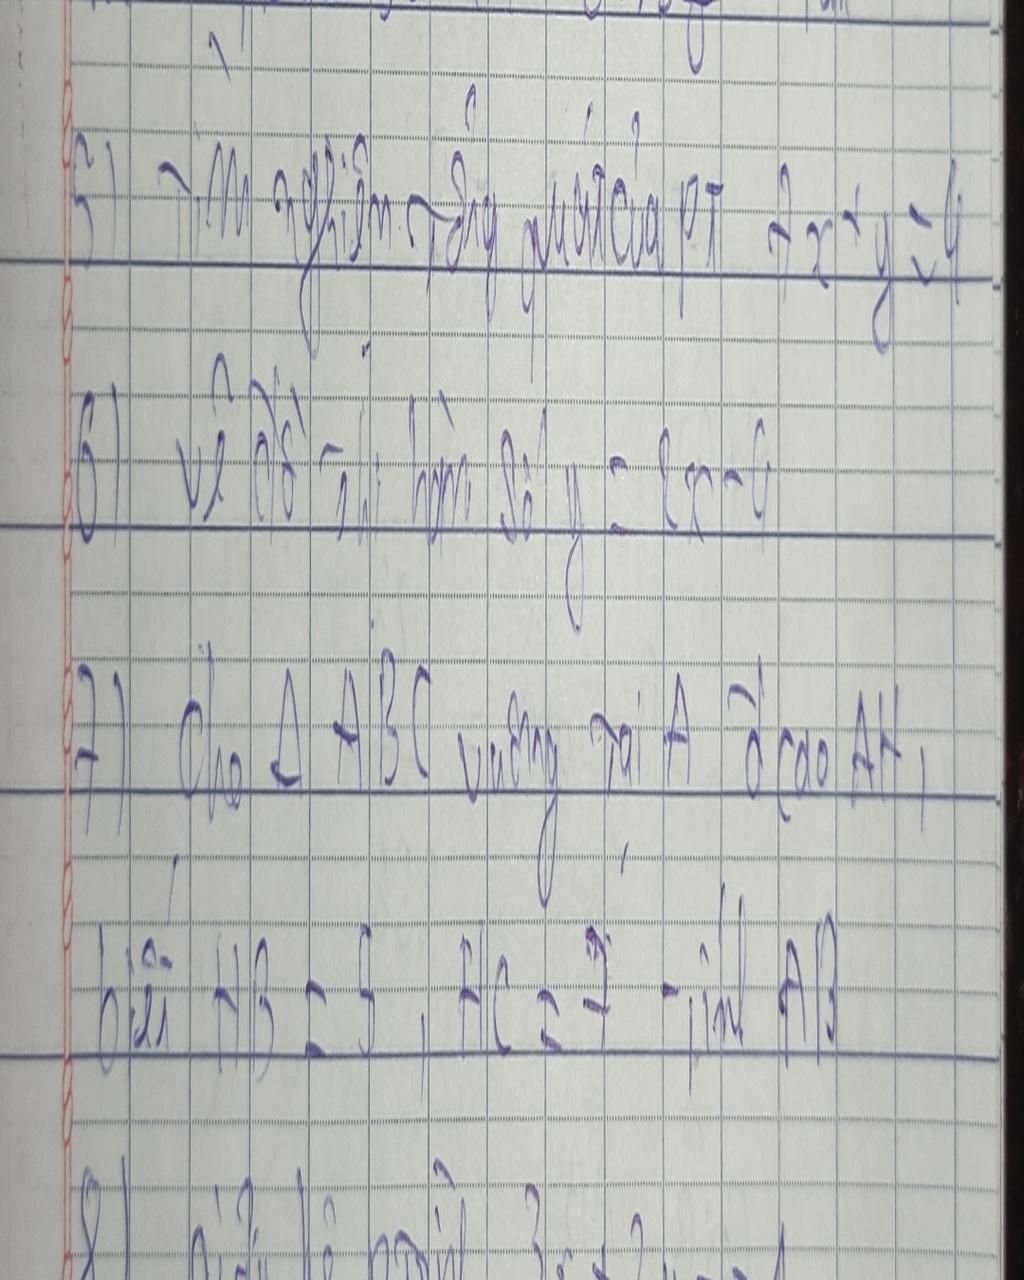 5) Tìm nghiệm Tổng quát của PT 7x+y=4
6) Vẽ đồ Thị hàm số y = 2x-6
7) Cho Δ ABC vuông Tại A đ cao AH,
biết HB = 5, HC = 7 Tính AB
8)